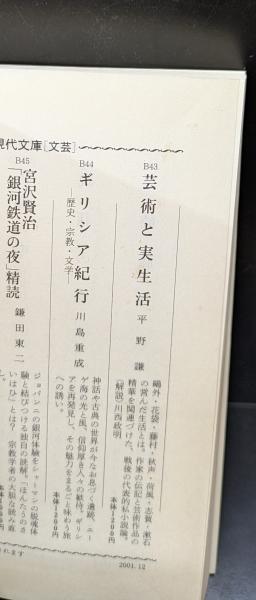 現代文庫[文芸]
B43
芸術と実生活
平野 謙
鷗外・花袋・藤村・秋声・荷風・志賀・漱石
の営んだ生活とは。作家の伝記と芸術作品の
精華を関連づけた、戦後の代表的私小説論。
〔解説〕川西政明
本体1200円
B44
ギリシア紀行
―歴史・宗教・文学―
川島重成
神話や古典の世界が今なお息づく遺跡、エー
ゲ海の光と風、信仰厚き人々の歓待。ギリシ
アを再発見し、その魅力をまるごと味わう旅
への誘い。
本体1200円
B45
宮沢賢治
「銀河鉄道の夜」精読
鎌田東二
ジョバンニの銀河体験をシャーマンの脱魂体
験と結びつける独自の読解。「ほんたうのさ
いはひ」とは？ 宗教学者の大胆な読み直
し。
本体
れます
2001.12